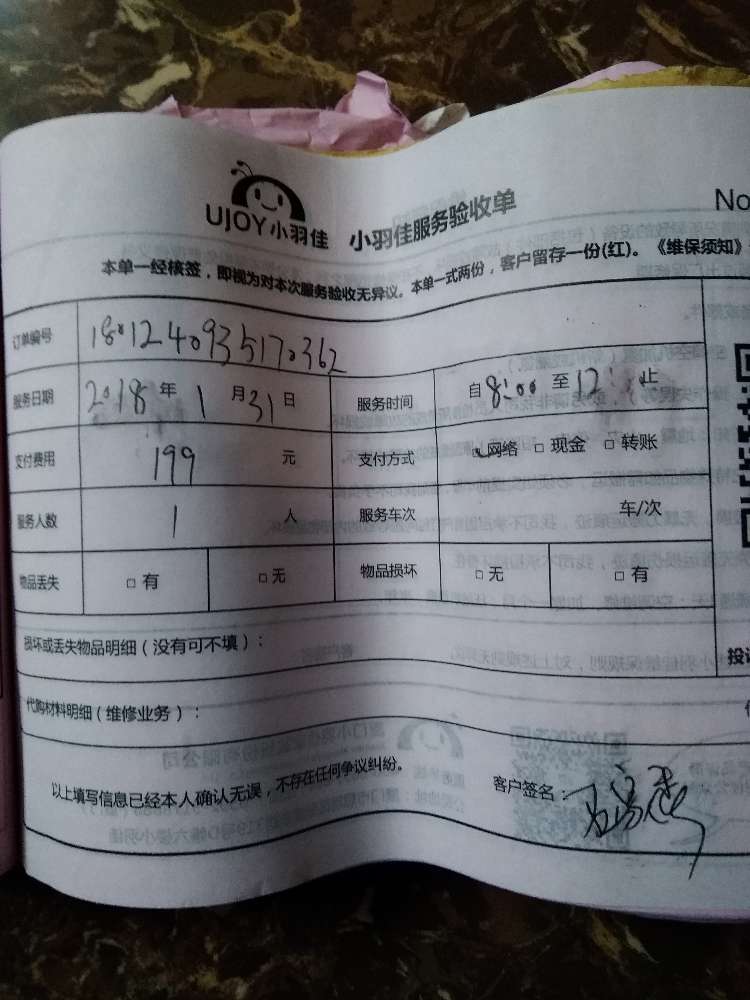 UJOY小羽佳 小羽佳服务验收单 No
本单一经核签，即视为对本次服务验收无异议。本单一式两份，客户留存一份(红)。《维保须知》
订单编号 1801240935170362
服务日期 2018 年 1 月 31 日 服务时间 自 8:00 至 12: 止
支付费用 199 元 支付方式 网络 □ 现金 □ 转账
服务人数 1 人 服务车次 车/次
物品丢失 □ 有 □ 无 物品损坏 □ 无 □ 有
损坏或丢失物品明细（没有可不填）：
投诉
代购材料明细（维修业务）：
以上填写信息已经本人确认无误，不存在任何争议纠纷。 客户签名：